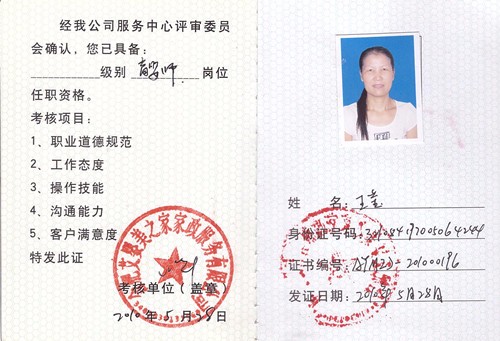 经我公司服务中心评审委员
会确认，您已具备：
级别 育婴师 岗位
任职资格。
考核项目：
1、职业道德规范
2、工作态度
3、操作技能
4、沟通能力
5、客户满意度
特发此证
考核单位（盖章）
2010年5月28日
姓 名：
身份证号码：
证书编号：
发证日期：2010年5月28日